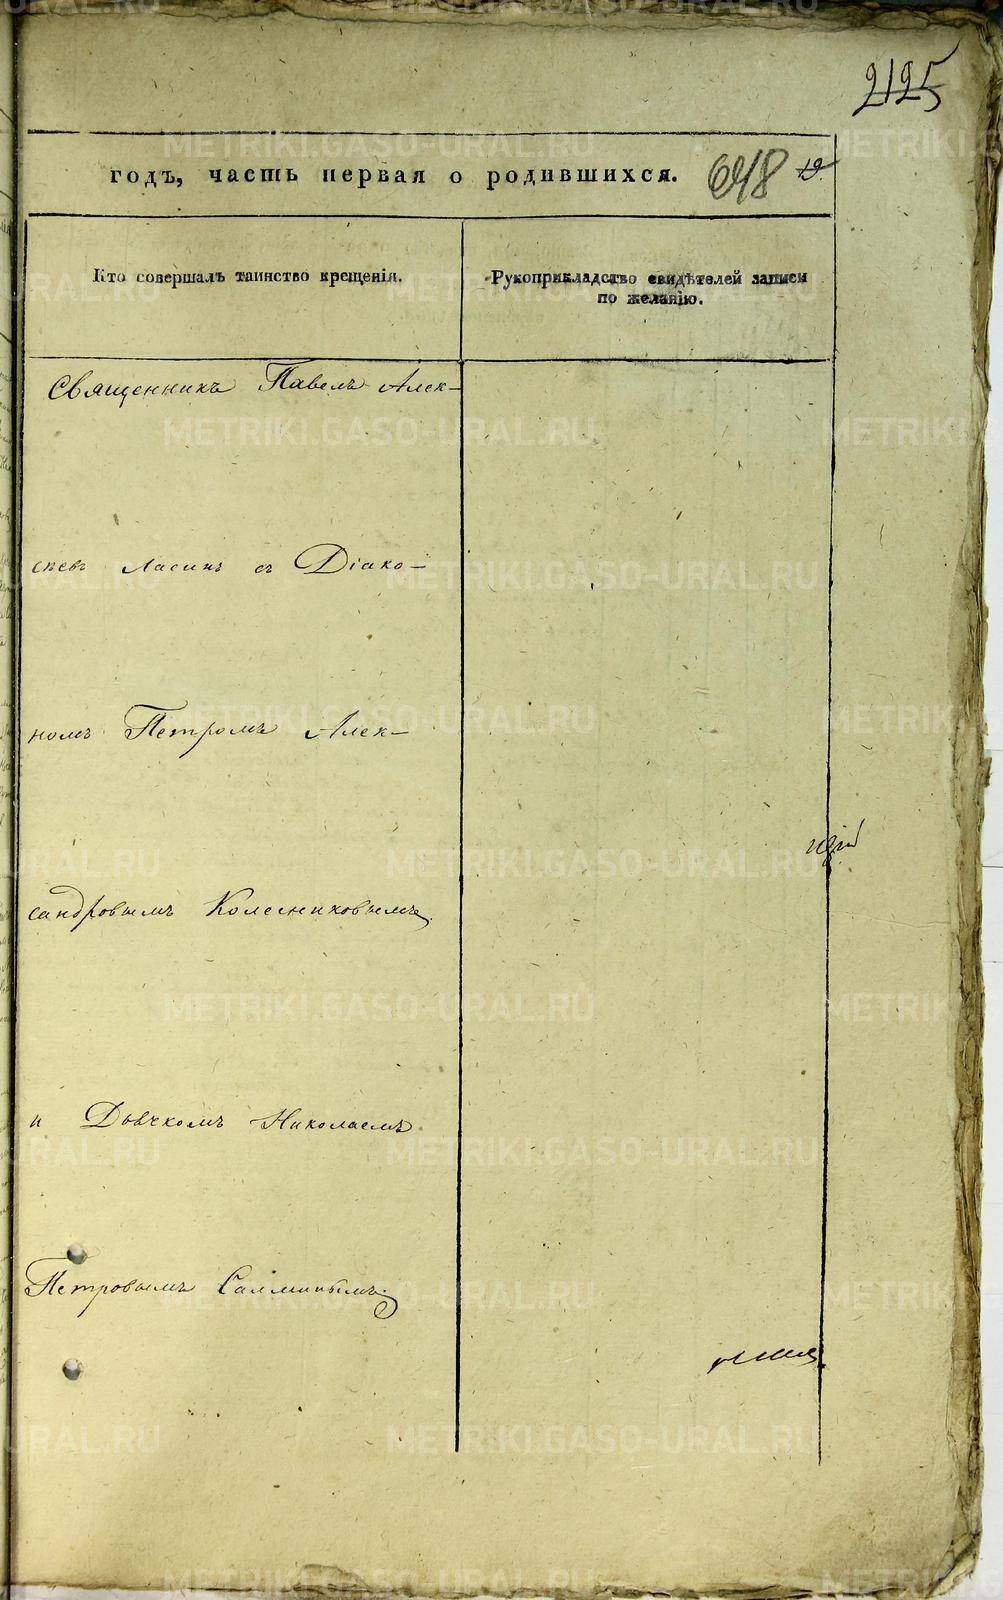 2125
годъ, часть первая о родившихся. 648 12
Кто совершалъ таинство крещенія.
Рукоприкладство свидѣтелей записи
по желанію.
Священникъ Павелъ Алек-
сѣевъ Ласинъ съ Діако-
номъ Петромъ Алек-
сандровымъ Колесниковымъ
и Дьячкомъ Николаемъ
Петровымъ
METRIKI.GASO-URAL.RU